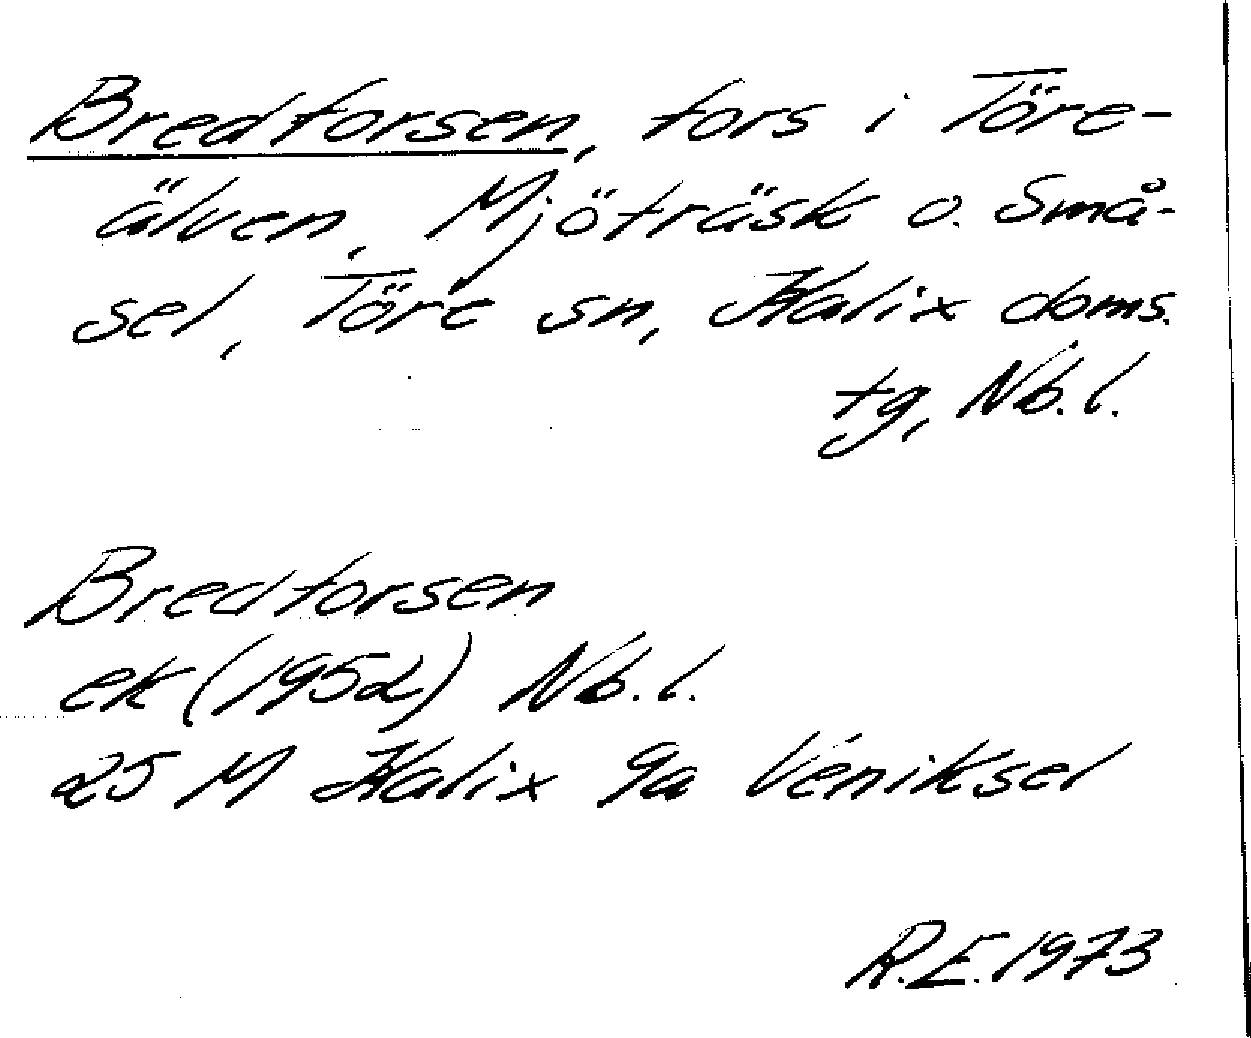 Bredforsen, fors i Töre-
älven, Mjöträsk o. Små-
sel, Töre sn, Kalix doms.
tg, Nb.l.
Bredforsen
ek (1952) Nb.l.
25 M Kalix 9a Veniksel
R.E. 1973